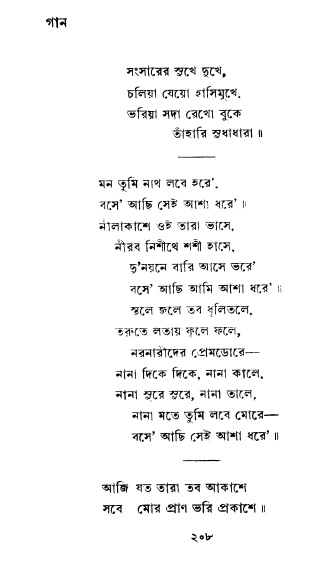 গান
সংসারের সুখে দুখে,
চলিয়া যেয়ো হাসিমুখে.
ভরিয়া সদা রেখো বুকে
তাঁহারি সুধাধারা॥
মন তুমি নাথ লবে হরে'.
বসে' আছি সেই আশা ধরে'॥
নীলাকাশে ওই তারা ভাসে.
নীরব নিশীথে শশী হাসে.
দু'নয়নে বারি আসে ভরে'
বসে' আছি আমি আশা ধরে'॥
স্থলে জলে তব ধূলিতলে.
তরুতে লতায় ফুলে ফলে,
নরনারীদের প্রেমডোরে—
নানা দিকে দিকে, নানা কালে.
নানা সুরে সুরে, নানা তালে.
নানা মতে তুমি লবে মোরে—
বসে' আছি সেই আশা ধরে'॥
আজি যত তারা তব আকাশে
সবে মোর প্রাণ ভরি প্রকাশে॥
২০৮